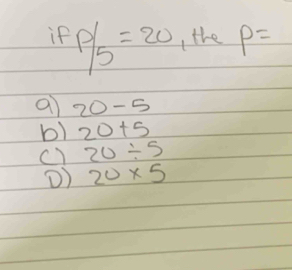 if p/5 = 20, the p=
a) 20-5
b) 20+5
c) 20÷5
D) 20×5